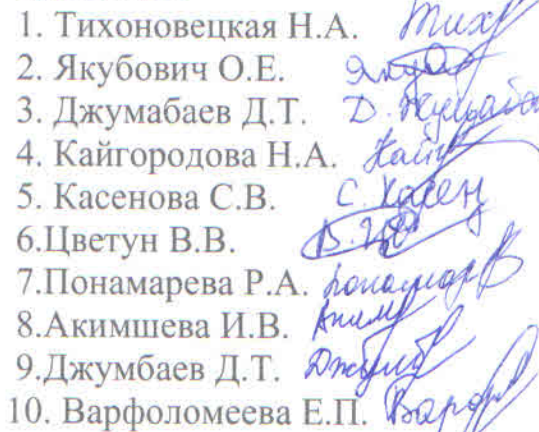 1. Тихоновецкая Н.А. Тих
2. Якубович О.Е.
3. Джумабаев Д.Т.
4. Кайгородова Н.А. Кайг
5. Касенова С.В. С. Касен
6.Цветун В.В.
7.Понамарева Р.А. Понамар
8.Акимшева И.В. Аким
9.Джумбаев Д.Т.
10. Варфоломеева Е.П. Варф